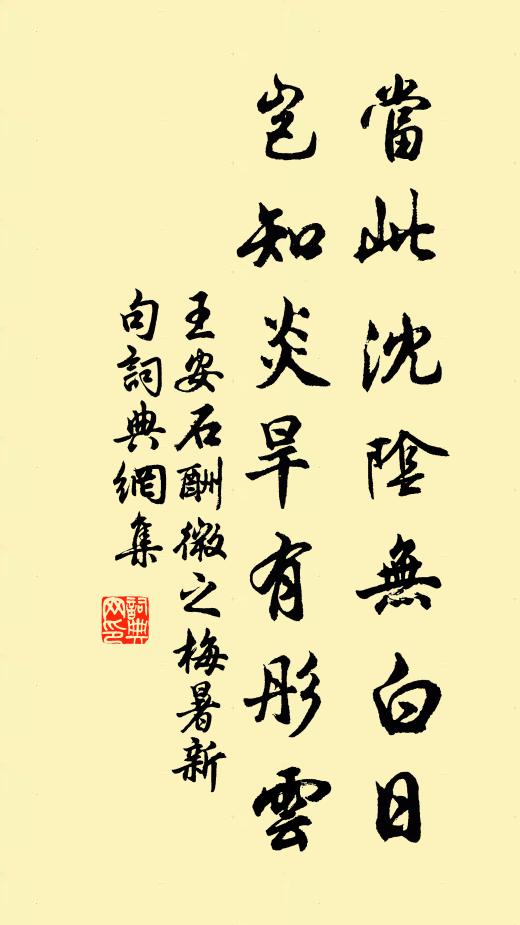 當此沈陰無白日
豈知炎旱有彤雲
王安石酬微之梅暑新
句詞典網集
詞典網印